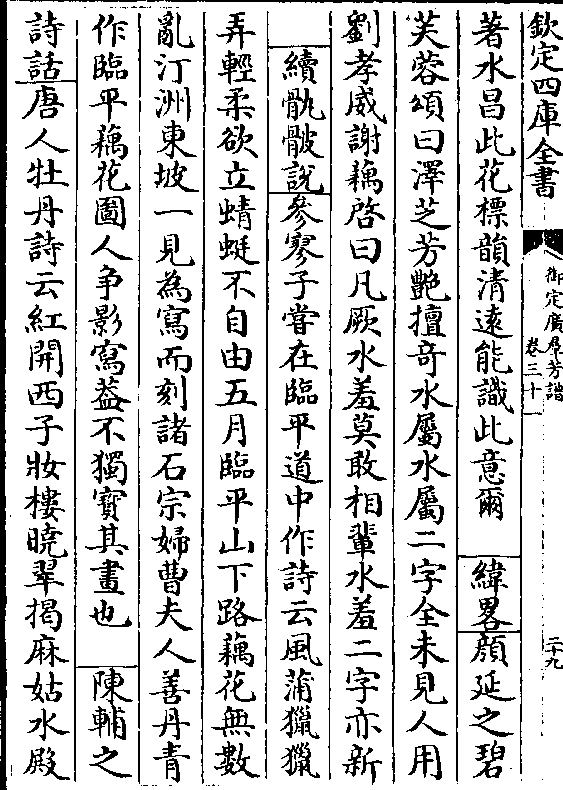 欽定四庫全書
御定廣羣芳譜
卷三十
二十九
著水昌此花標韻清遠能識此意爾　緯畧顔延之碧
芙蓉頌曰澤芝芳艷擅奇水屬水屬二字全未見人用
劉孝威謝藕啓曰凡厥水羞莫敢相輩水羞二字亦新
續骩骳說參寥子嘗在臨平道中作詩云風蒲獵獵
弄輕柔欲立蜻蜓不自由五月臨平山下路藕花無數
亂汀洲東坡一見為寫而刻諸石宗婦曹夫人善丹青
作臨平藕花圖人争影寫葢不獨寳其畫也　陳輔之
詩話唐人牡丹詩云紅開西子妝樓曉翠揭麻姑水殿